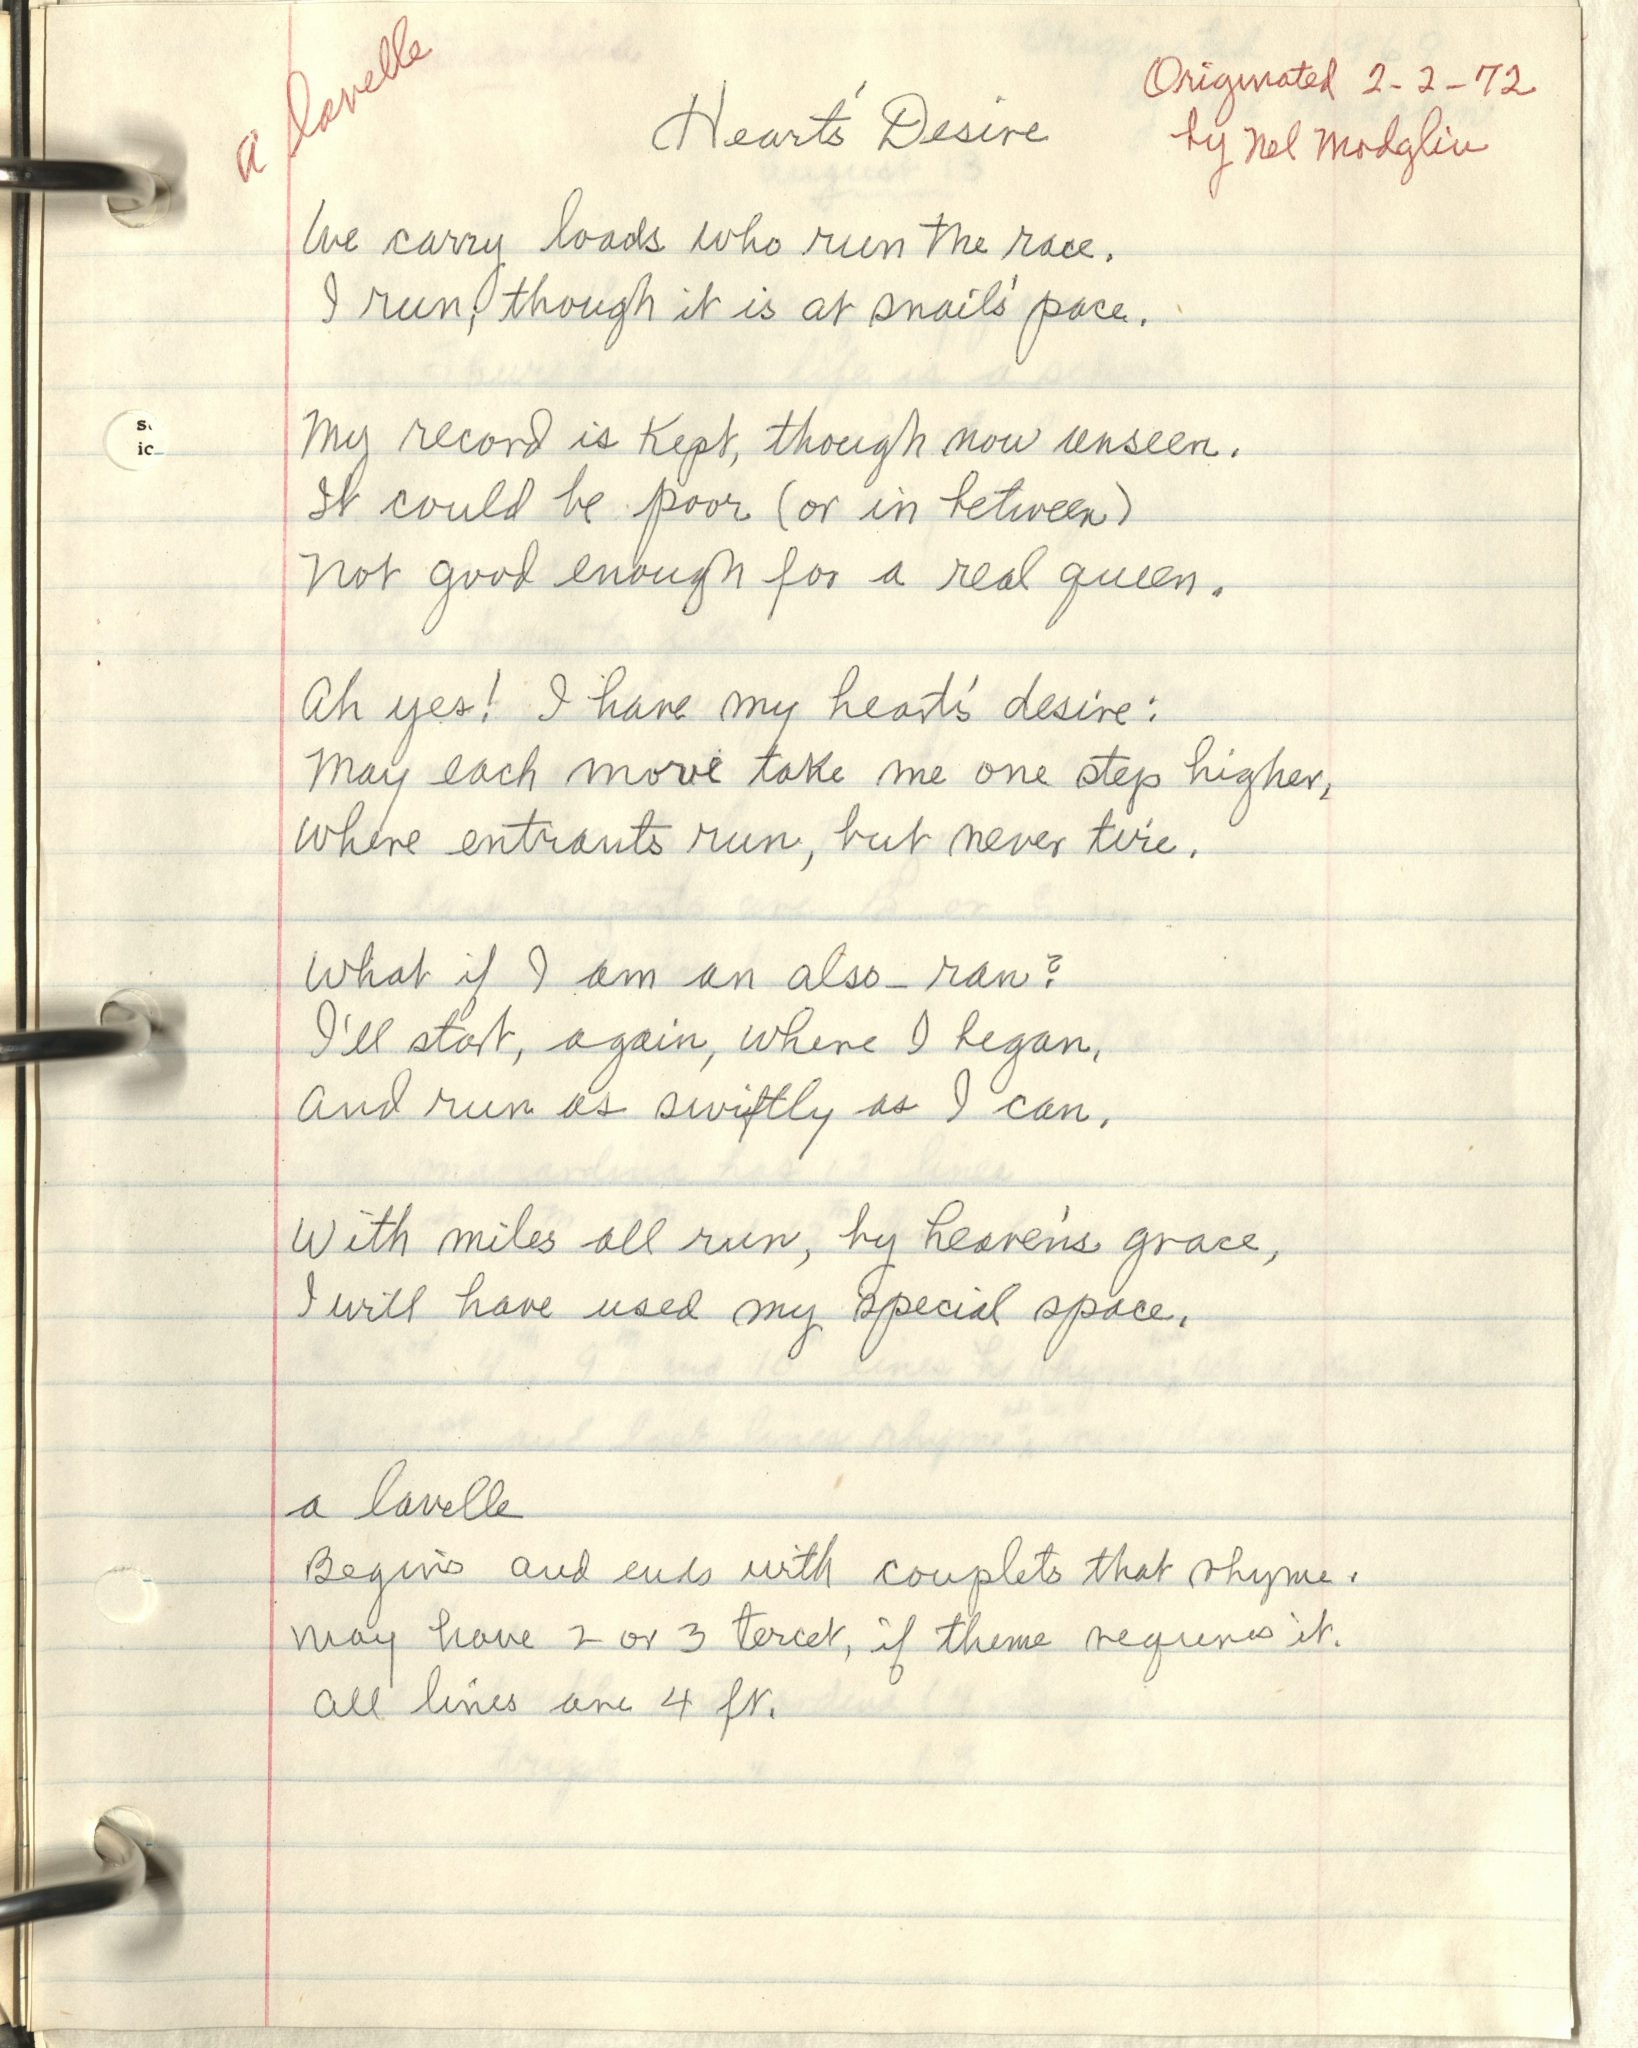 a lavelle
Heart's Desire
Originated 2-2-72
by Nel Modglin
We carry loads who run the race.
I run, though it is at snail's pace.
My record is kept, though now unseen.
It could be poor (or in between)
Not good enough for a real queen.
Ah yes! I have my heart's desire:
May each move take me one step higher,
Where entrants run, but never tire.
What if I am an also-ran?
I'll start, again, where I began,
And run as swiftly as I can,
With miles all run, by heaven's grace,
I will have used my special space.
a lavelle
Begins and ends with couplets that rhyme.
May have 2 or 3 tercet, if theme requires it.
All lines are 4 ft.